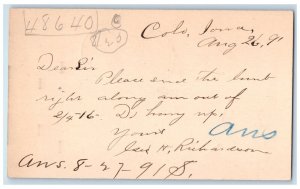 48640
Colo, Iowa,
Aug 26, 91
Dear Sir
Please send the bunt
right along am out of
2/4-16. D. hung up,
Yours
H, Richardson
Ans
Ans. 8-27-91 S.